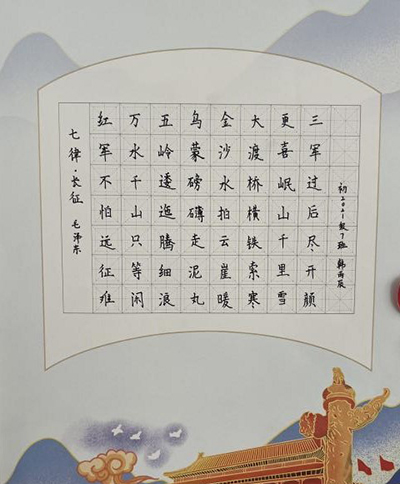 七律·长征 毛泽东
红军不怕远征难
万水千山只等闲
五岭逶迤腾细浪
乌蒙磅礴走泥丸
金沙水拍云崖暖
大渡桥横铁索寒
更喜岷山千里雪
三军过后尽开颜
初2021级7班